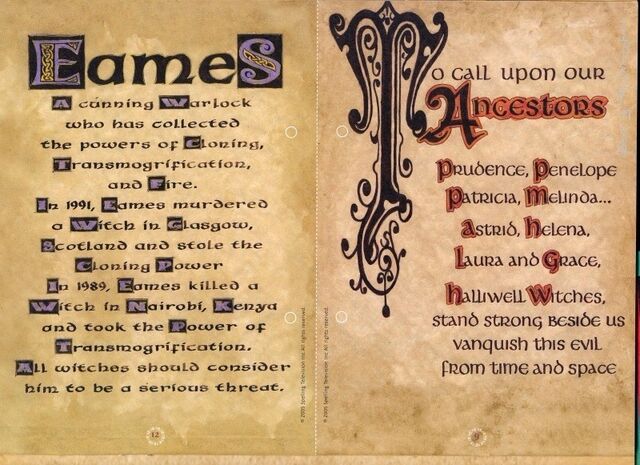 Eames
A cunning Warlock
who has collected
the powers of Cloning,
Transmogrification,
and Fire.
In 1991, Eames murdered
a Witch in Glasgow,
Scotland and stole the
Cloning Power
In 1989, Eames killed a
Witch in Nairobi, Kenya
and took the Power of
Transmogrification.
All witches should consider
him to be a serious threat.
© 2005 Spelling Television Inc. All rights reserved.
12
To call upon our
Ancestors
Prudence, Penelope
Patricia, Melinda...
Astrid, Helena,
Laura and Grace,
Halliwell Witches,
stand strong beside us
vanquish this evil
from time and space
© 2005 Spelling Television Inc. All rights reserved.
9